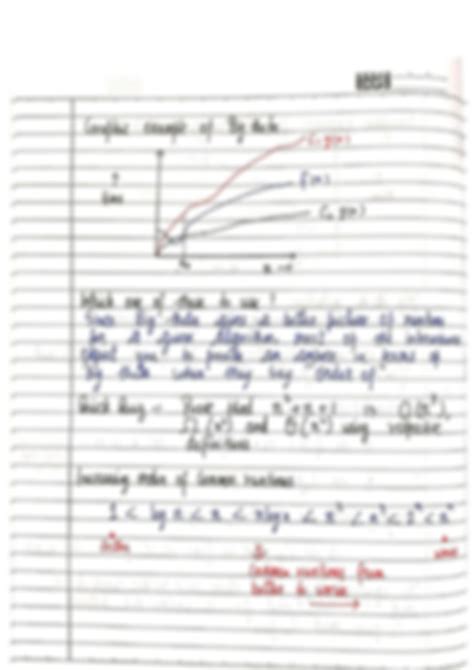 Graphic example of Big theta
C₁ g(n)
f(n)
C₂ g(n)
↑
time
n₀
n →
Which one of these to use ?
Since Big theta gives a better picture of runtime
for a given algorithm, most of the interviewers
expect you to provide an answer in terms of
Big theta when they say "order of"
Quick Quiz :- Prove that n² + n + 1 is O(n²),
Ω(n²) and Θ(n²) using respective
definitions
Increasing order of common runtimes
1 < log n < n < n log n < n² < n³ < 2ⁿ < nⁿ
better
worse
common runtimes from
better to worse